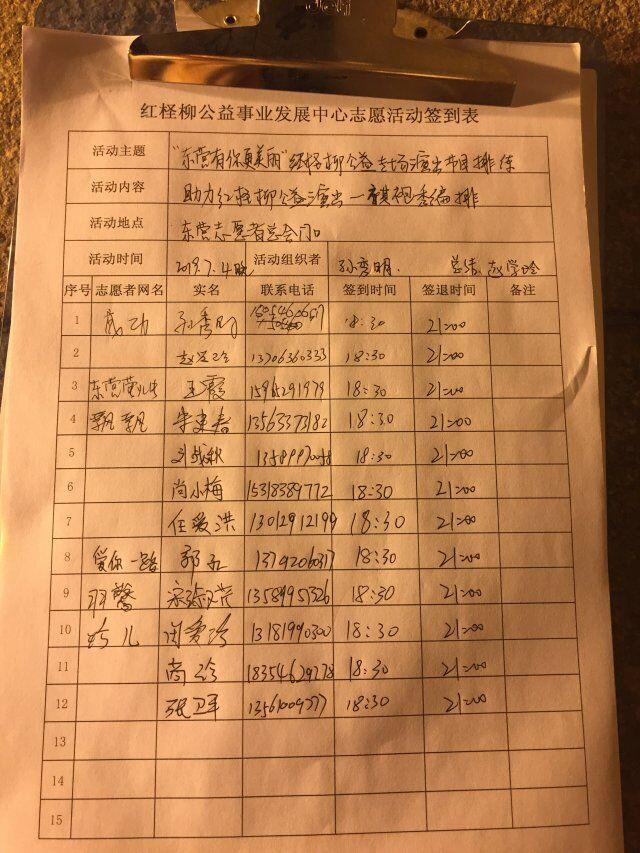 红柽柳公益事业发展中心志愿活动签到表
活动主题 "东营有你更美丽"红柽柳公益专场演出节目排练
活动内容 助力红柽柳公益演出一旗袍秀编排
活动地点 东营志愿者总会
活动时间 2019.7.4晚 活动组织者 孙秀明. 总结 赵学玲
序号 志愿者网名 实名 联系电话 签到时间 签退时间 备注
1 成功 孙秀明 18:30 21:00
2 13706360333 18:30 21:00
3 王霞 18:30 21:00
4 飘飘 13563373182 18:30 21:00
5 刘战秋 18:30 21:00
6 尚小梅 15318389772 18:30 21:00
7 任爱洪 13012912199 18:30 21:00
8 爱你一路 18:30 21:00
9 羽馨 13589951326 18:30 21:00
10 周爱玲 13181990300 18:30 21:00
11 尚玲 18354629278 18:30 21:00
12 张卫军 18:30 21:00
13
14
15